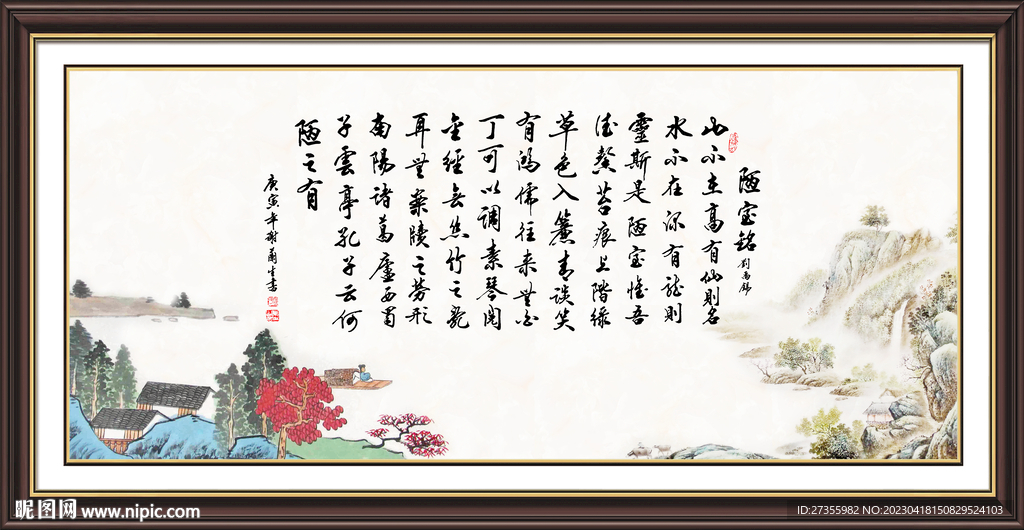 陋室銘
劉禹錫
山不在高有仙則名
水不在深有龍則
靈斯是陋室惟吾
德馨苔痕上階綠
草色入簾青談笑
有鴻儒往來無白
丁可以調素琴閱
金經無絲竹之亂
耳無案牘之勞形
南陽諸葛廬西蜀
子雲亭孔子云何
陋之有
庚寅年謝生書
昵图网 www.nipic.com
ID:27355982 NO:20230418150829524103